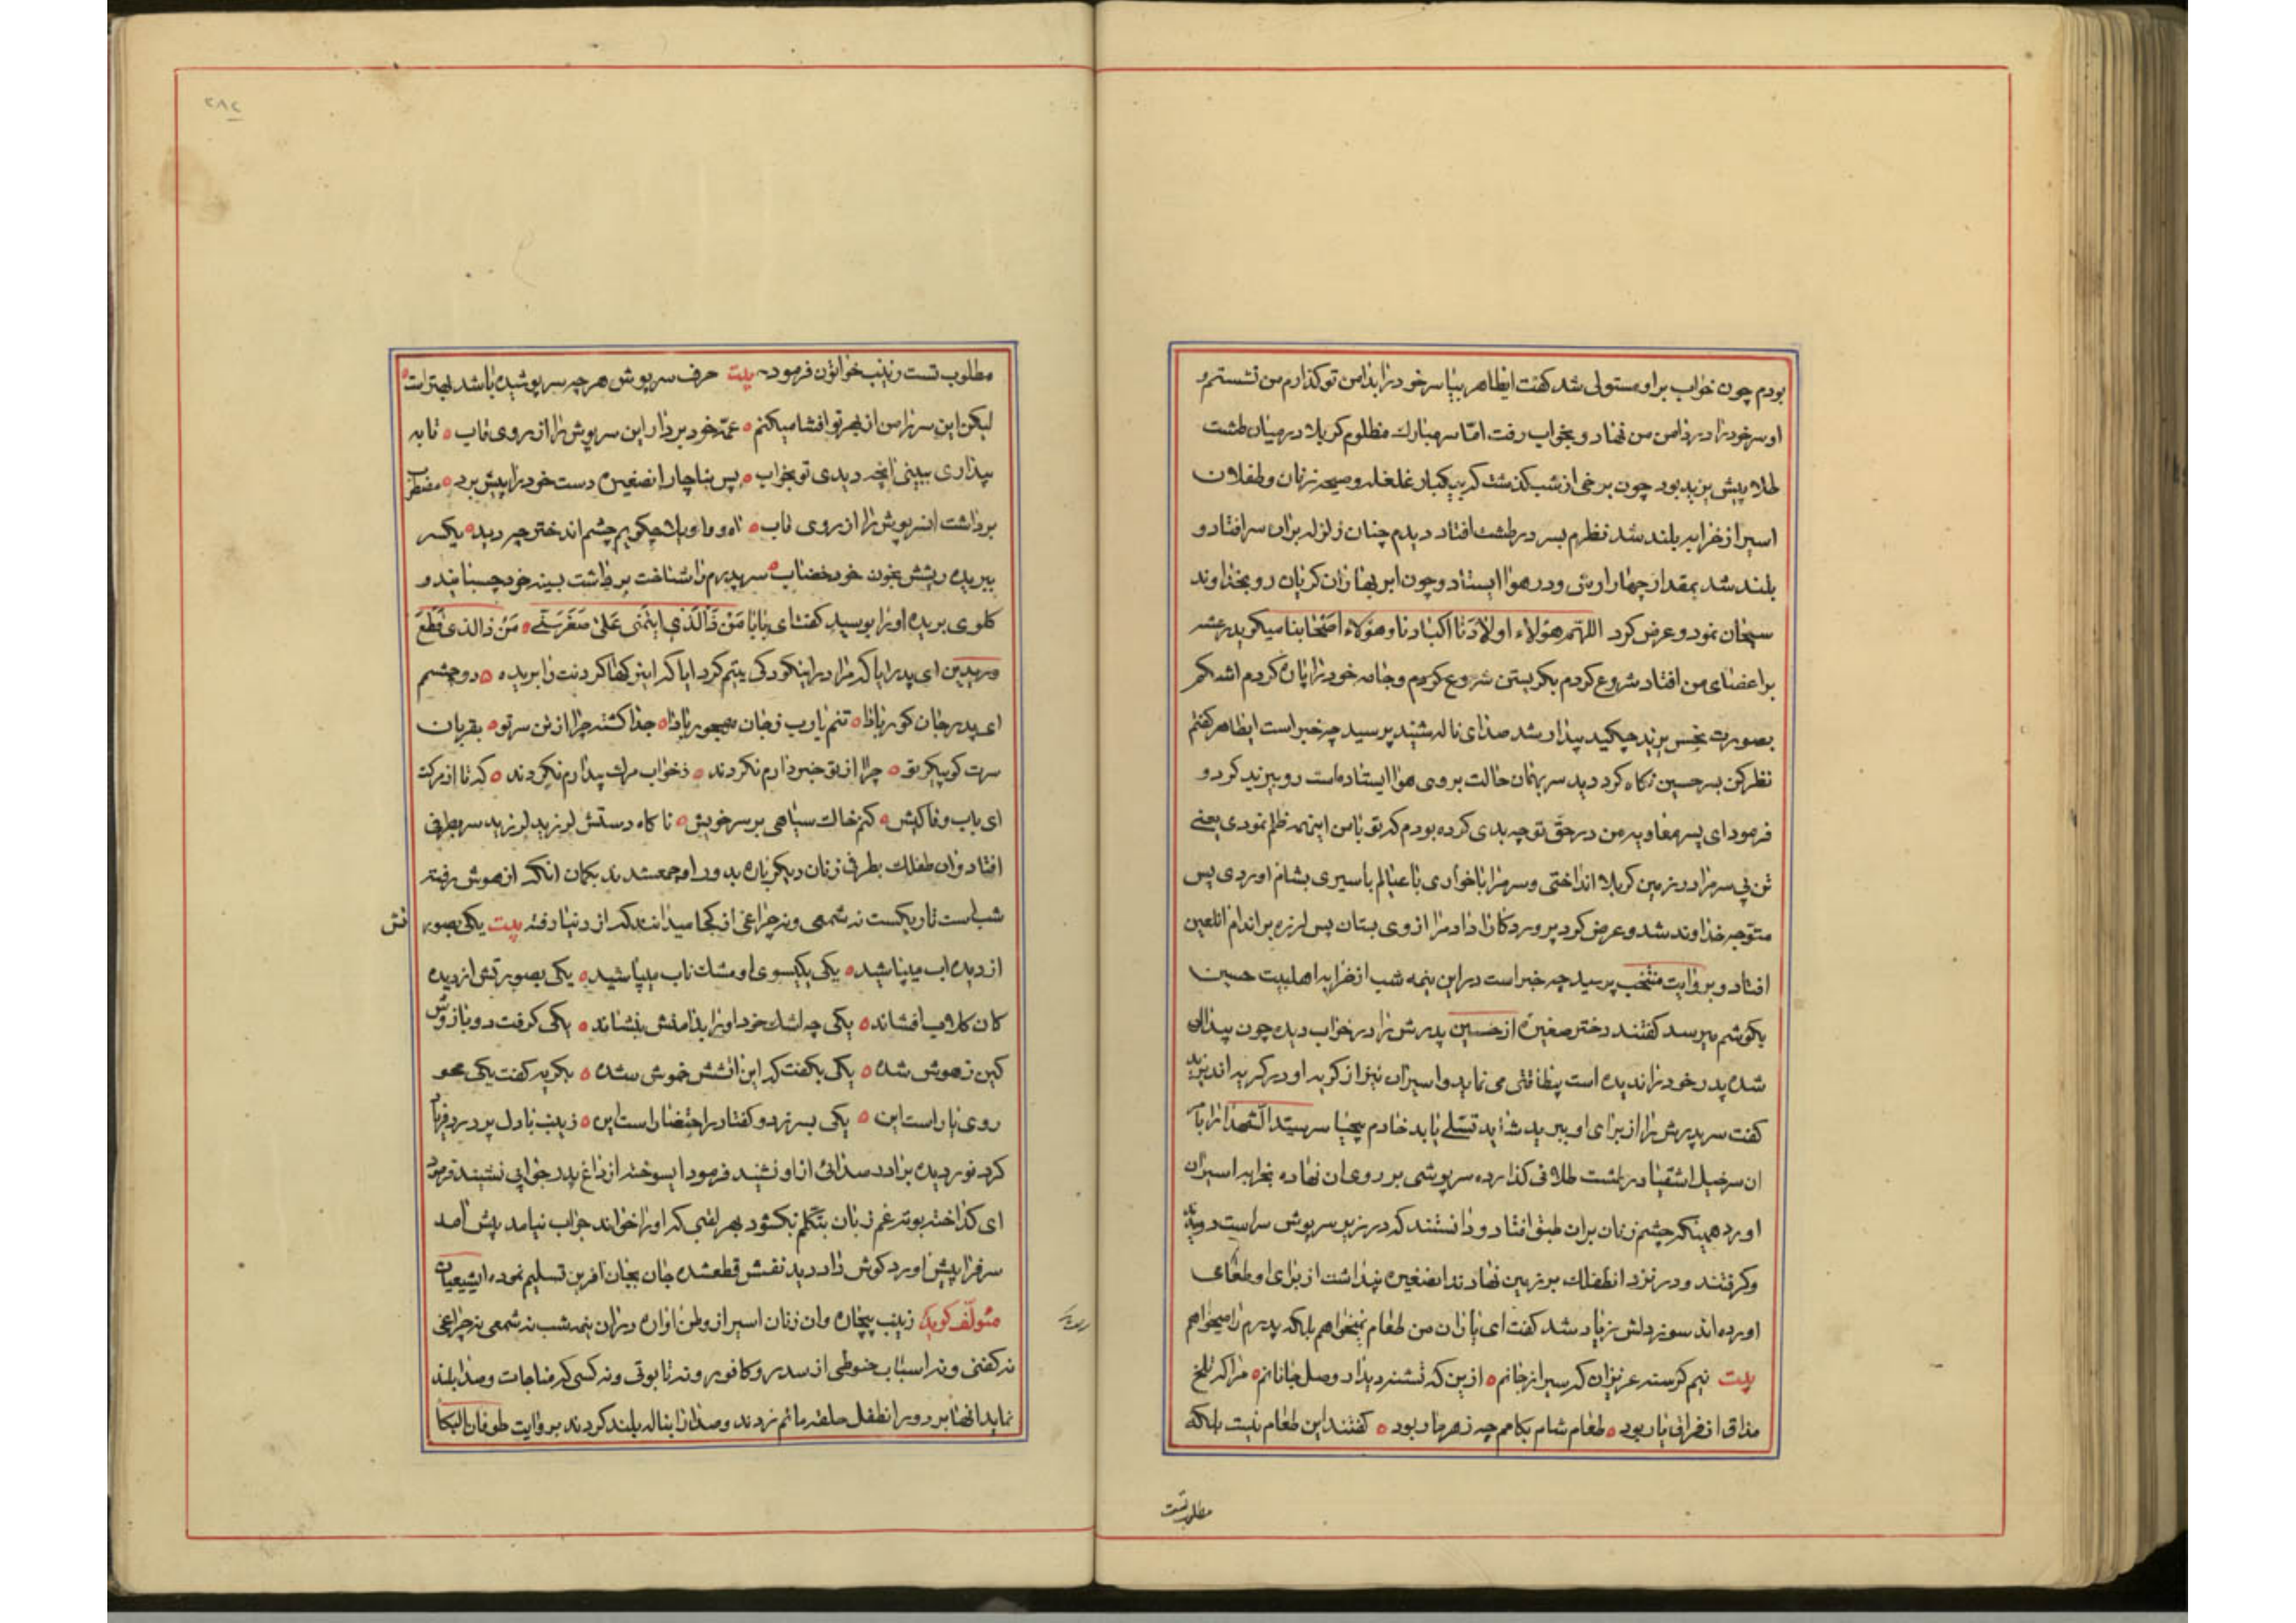 بودم چون خواب براو مستولی شد کفت ایطاهر بیا سر خود را بدامن تو کذارم من نشستم و
او سر خود را در دامن من نهاد و بخواب رفت امّا سر مبارک مظلوم کربلا در میان طشت
طلا پیش یزید بود چون برخی از شب کذشت که یکبار غلغله و صیحه زنان و طفلان
اسیر از خرابه بلند شد نظرم بسر در طشت افتاد دیدم چنان زلزله بران سر افتاد و
بلند شد بمقدار چهار ارش و در هوا ایستاد و چون ابر بهاران کریان رو بخداوند
سبحان نمود و عرض کرد اللهّم هؤلاء اولادَنا اکبادنا و هؤلاء اصحابنا میکوید رعشه
بر اعضای من افتاد شروع کردم بکریستن شروع کردم و جامه خود را پاره کردم اشکم
بصورت نجس یزید چکید بیدار شد صدای ناله شنید پرسید چه خبر است ایطاهر کفتم
نظر کن بسر حسین نکاه کرد دید سر بهمان حالت بر وی هوا ایستاده است رو بیزید کرد و
فرمود ای پسر معاویه من در حقّ تو چه بدی کرده بودم که تو با من اینهمه ظلم نمودی یعنی
تن بی سر مرا در زمین کربلا انداختی و سر مرا با خواری با عیالم باسیری بشام اوردی پس
متوّجه خداوند شد و عرض کرد پروردکارا داد مرا از وی بستان پس لرزه بر اندام انلعین
افتاد و بروایت منتخب پرسید چه خبر است در این نیمه شب از خرابه اهلبیت حسین
بکوشم میرسد کفتند دختر صغیرهٔ از حسین پدرش را در خواب دیده چون بیدار
شده پدر خود را ندیده است بیطاقتی می نماید و اسیران نیز از کریه او در کریه اند یزید
کفت سر پدرش را از برای او ببرید شاید تسّلی یابد خادم بیحیا سر سید الشهدا را با
ان سرخیل اشقیا در طشت طلا فی کذارده سرپوشی بر روی ان نهاده بخرابه اسیران
اورد همینکه چشم زنان بران طبق افتاد و دانستند که در زیر سرپوش سر است دویدند
و کرفتند و در نزد انطفلک بر زمین نهادند انصغیره پنداشت از برای او طعامی
اورده اند سوز دلش زیاد شد کفت ای یاران من طعام نمیخواهم بلکه پدرم را میخواهم
بیت نیم کرسنه عزیزان که سیر از جانم ازین که تشنه دیدار وصل جانانم مرا که تلخ
مذاق از فراق یار بود طعام شام بکامم چه زهر مار بود کفتند این طعام نیست بلکه
مطلوب تست
مطلوب تست زینب خواتون فرمود بیت حرف سرپوش هر چه سرپوشیده باشد بهتر است
لیکن این سر را من از بهر تو افشا میکنم عمّه خود بردار این سرپوش را از روی تاب تا به
بیداری ببینی انچه دیدی تو بخواب پس بناچار انصغیره دست خود را پیش برد مضطرب
برداشت انسرپوش را از روی تاب اه و واویلا چکویم چشم اندختر چه دید یکسر
ببریده ریشش بخون خود خضاب سر پدرم را شناخت برداشت بسینه خود چسبانید و
کلوی بریده او را بوسید کفت ای بابا مَنْ ذَا الَّذی ایتَمَنی عَلیٰ صَغَرِسنّی مَنْ ذا الذی قَطَعَ
وریدین ای پدر ایا که مرا در اینکودکی یتیم کرد ایا که این رکها کردنت را بریده دو چشم
ای پدر جان کور بادا تنم یارب ز جان مهجور بادا جدا کشته چرا از تن سر تو بقربان
سرت کو پیکر تو چرا از تو خبردارم نکردند ز خواب مرک بیدارم نکردند که تا از مرکت
ای باب وفاکیش کنم خاک سیاهی بر سر خویش ناکاه دستش لرزید لرزید سر بطرفی
افتاد وان طفلک بطرفی زنان دیکر باره بدور او جمعشدند بکمان انکه از هوش رفته
شب است تاریکست نه شمعی و نه چراغی از کجا میدانند که از دنیا رفته بیت یکی بصور
تش
از دیده اب میپاشید یکی بکیسوی او مشک ناب میپاشید یکی بصورتش از دیده
کان کلاب افشاند یکی چه اشک خود او را بدامنش بنشاند یکی کرفت دو بازوش
کین ز هوش شده یکی بکفت که این اتشش خموش شده بکریه کفت یکی محو
روی یار است این یکی بسر زد و کفتا در احتضار است این زینب با دل پر درد فریاد
کرد نور دیده برادر صدائی از او نشنید فرمود ایسوخته از داغ پدر جوابی نشنید فرمود
ای کداخته بوته غم زبان بتکلّم نکشود بهر لقبی که او را خواند جواب نیامد پیش امد
سر فرا پیش اورد کوش داد دید نفسش قطعشده جان بجان افرین تسلیم نموده ایشیعیان
مئولّف کوید زینب بیچاره وان زنان اسیر از وطن اواره دران نیمه شب نه شمعی نه چراغی
نه کفنی و نه اسباب حنوطی از سدر و کافور و نه تابوتی و نه کسی که مناجات و صدا بلند
نماید انها بر دور انطفل حلقه ماتم زدند و صدا را بناله بلند کردند بروایت طوفان البکا